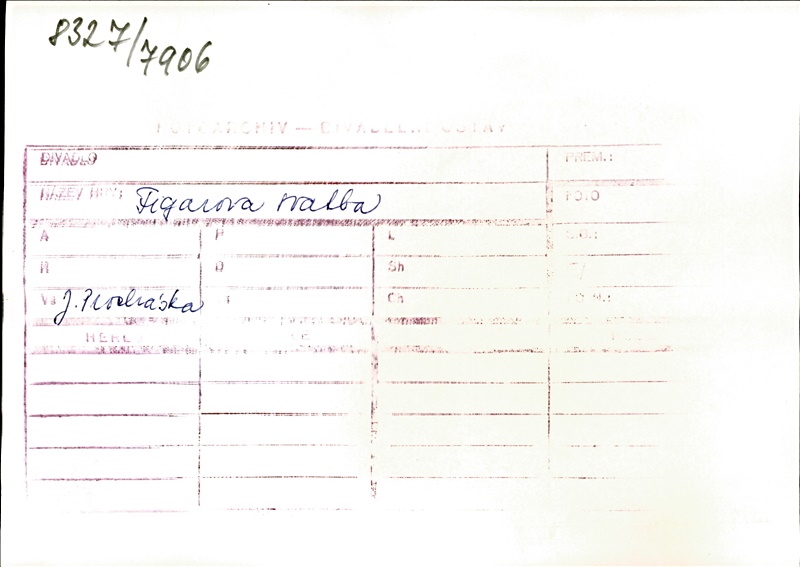 8327/7906
FOTOARCHIV — DIVADELNÍ ÚSTAV
DIVADLO PREM.:
NÁZEV HRY: Figarova svatba FOTO
A P L
R D Sh
J. Procházka Ch